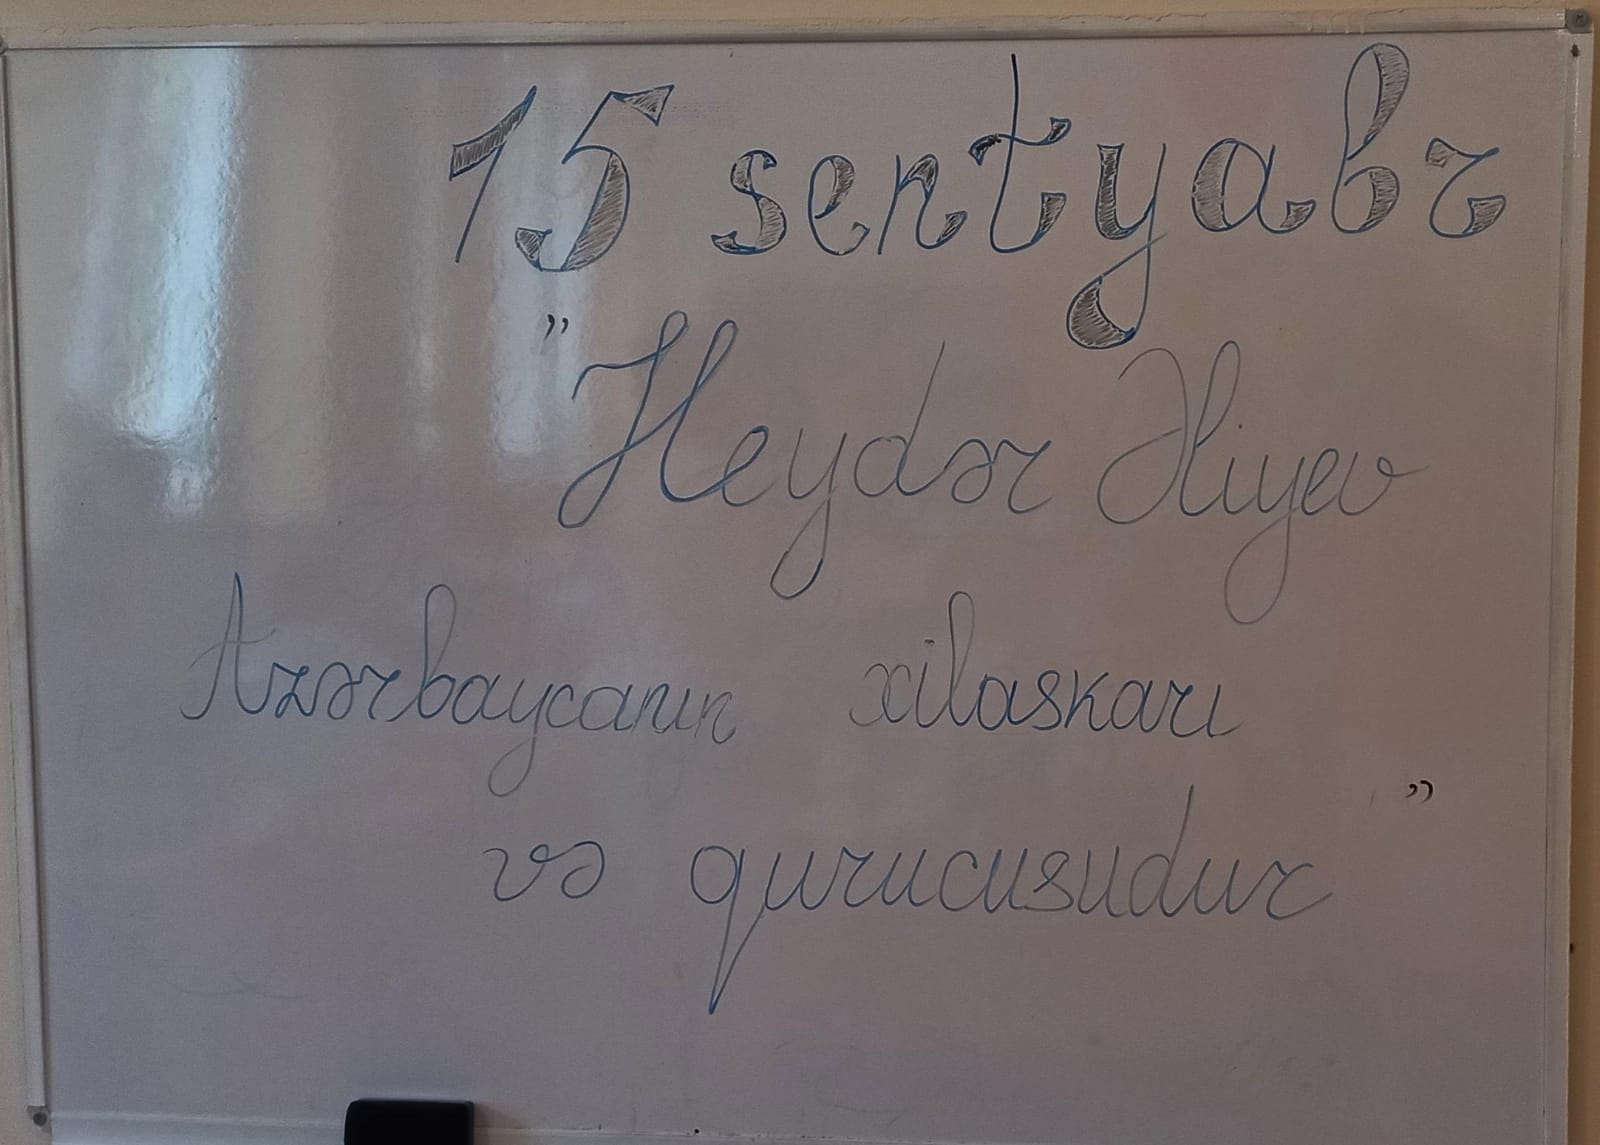 15 sentyabr
"Heydər Əliyev
Azərbaycanın xilaskarı
və qurucusudur"